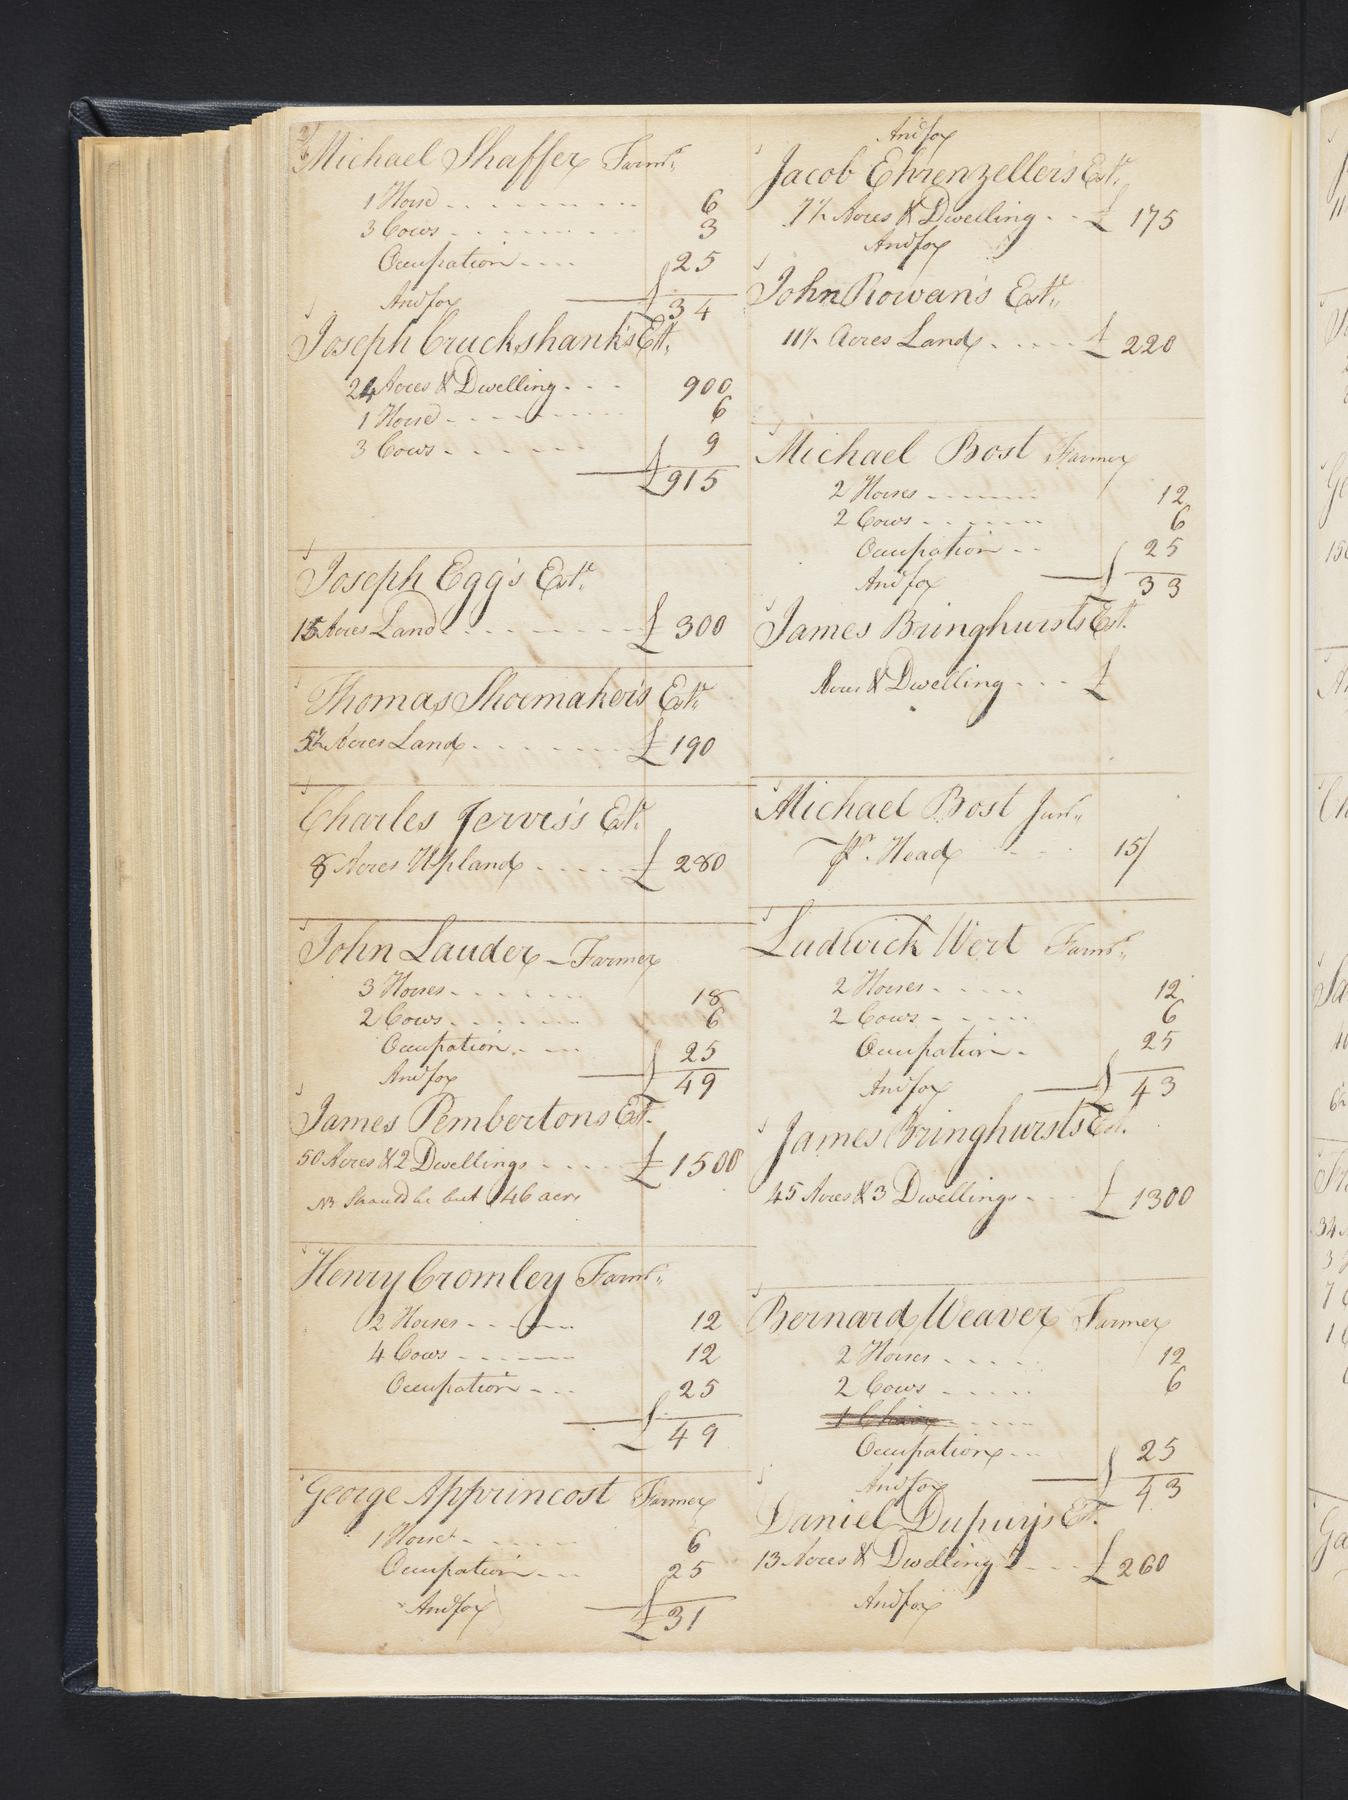 Michael Shaffer Farmr.
1 Horse 6
3 Cows 3
Occupation 25
And for £ 34
Joseph Cruckshank's Est.
24 Acres & Dwelling 900
1 Horse 6
3 Cows 9
£ 915
Joseph Egg's Este.
15 Acres Land £ 300
Thomas Shoemaker's Este.
5½ Acres Land £ 190
Charles Jervis's Este.
8 Acres Upland £ 280
John Lauder - Farmer
3 Horses 18
2 Cows 6
Occupation 25
And for £ 49
James Pembertons Est.
50 Acres & 2 Dwellings £ 1500
NB Should be but 46 acres
Henry Cromley Farmr.
2 Horses 12
4 Cows 12
Occupation 25
£ 49
George Apprincost Farmer
1 Horse 6
Occupation 25
And for £ 31
And for
Jacob Ehrenzeller's Est.
7½ Acres & Dwelling £ 175
And for
John Rowan's Este.
11½ Acres Land £ 220
Michael Bost Farmer
2 Horses 12
2 Cows 6
Occupation 25
And for £ 33
James Bringhursts Est.
Acres & Dwelling £
Michael Bost Junr.
pr. Head 15/
Ludwick Wert Farmr.
2 Horses 12
2 Cows 6
Occupation 25
And for £ 43
James Bringhursts Est.
45 Acres & 3 Dwellings £ 1300
Bernard Weaver Farmer
2 Horses 12
2 Cows 6
1 Chair
Occupation 25
And for £ 43
Daniel Dupuy's Est.
13 Acres & Dwelling £ 260
And for